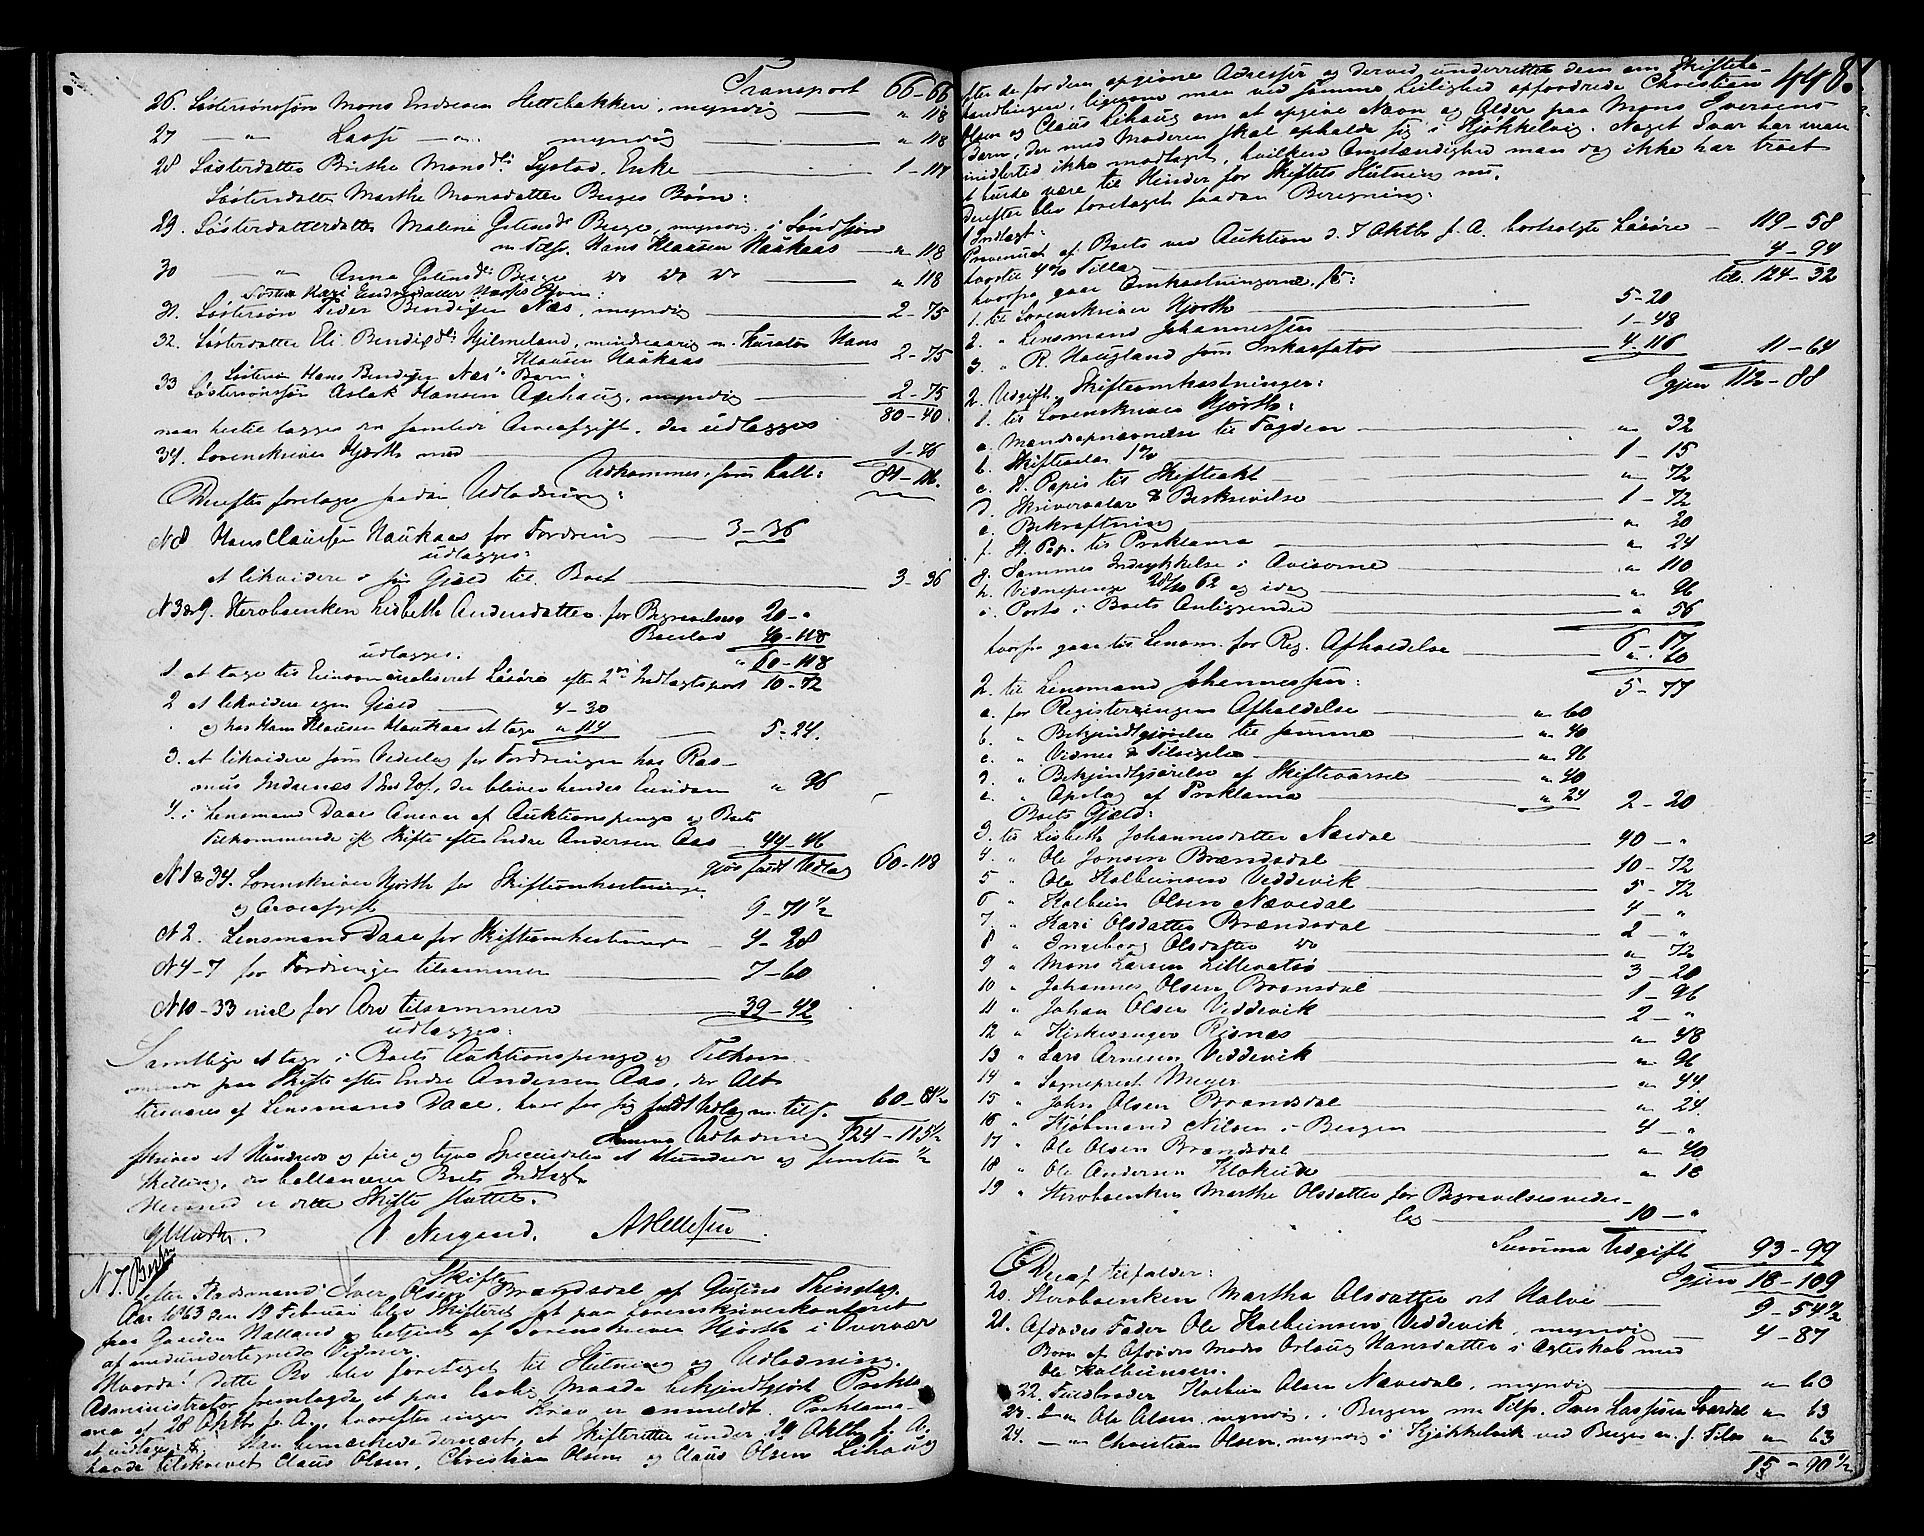 Transport 66-66
26. Søstersønssøn Mons Endresen Hettebakken, myndig — " 118
27 — " — Lasse — " — myndig — " 118
28 Søsterdatter Brithe Monsdtr Systad, Enke — 1-118
Søsterdatter Marthe Monsdatter Berges Børn:
29. Søsterdatterdatter Malene Berge, myndig i Søndfjord
m. Tils. Hans Klausen Haukaas — " 118
30 — " — Anna Berge do do do — " 118
Søster Kari Endresdatter Næses Børn:
31. Søstersøn Peder Bendixen Næs, myndig — 2-75
32. Søsterdatter Eli Bendixdtr Hjelmeland, mindreaarig m. Kurator Hans
Klausen Haukaas — 2-75
Søstersøn Hans Bendixen Næs' Barn:
33 Søstersønssøn Aslak Hansen Axehaug, myndig — 2-75
80-40
naar hertil lægges den samlede Arveafgift, der udlægges
34. Sorenskriver Hjorth med — 1-76
Udkommer, som balt: 81-116.
Derefter foretages saadan Udlodning:
N 8 Hans Claussen Haukaas for Fordring — 3-36
udlægges:
at likvidere i sin Gjæld til Boet — 3-36
N 3 & 9. Sterboenken Lisbeth Andersdatter for Begravelsen 20-"
Boeslod 40-118
udlægges: 60-118
1. at tage til Eiendom realiseret Løsøre efter 2den Indtægtspost 10-72
2 at likvidere egen Gjæld — 4-30
og hos Hans Klausen Haukaas at tage " 114 — 5-24.
3. at likvidere som Vederlag for Fordringen hos Ras-
mus Indrenæs, der bliver hendes Eiendom " 96
4. i Lensmand Daaes Ansvar af Auktionspenge og Boets
Tilkommende i Skifte efter Endre Andersen Aas — 44-46
gjør fuldt Udlæg 60-118
N 1 & 34. Sorenskriver Hjorth for Skifteomkostninger
og Arveafgift — 9-71½
N 2. Lensmand Daae for Skifteomkostninger — 4-28
N 4-7 for Fordringer tilsammen — 7-60
N 10-33 incl for Arv tilsammen — 39-42
udlægges:
Samtlige at tage i Boets Auktionspenge og Tilkom-
mende paa Skifte efter Endre Andersen Aas, der Alt
tilsvares af Lensmand Daae, hvor for sig fuldt Udlæg m. tils. 60-81½
Summa Udlodning 124-115½
skriver et Hundrede og fire og tyve Speciedaler et Hundrede og femten ½
Skilling, der ballancerer Boets Indtægt.
Hermed er dette Skifte sluttet.
Hjorth. A Nergaard. A Hellesen
N 7. Skifte
efter Radsmand Iver Olsen Brændsdal af Gulens Thinglag.
Aar 1863 den 19 Februar blev Skifteret sat paa Sorenskriverkontoret
paa Gaarden Halland og betjent af Sorenskriver Hjorth i Overvær
af medundertegnede Vidner.
Hvorda: dette Bo blev foretaget til Slutning og Udlodning.
Administrator fremlagde et paa lovlig Maade bekjendtgjort Prokla-
ma af 28 Oktbr f. A., hvorefter ingen Krav er anmeldt. Proklama-
et udlagges. Man bemærkede dernæst, at Skifteretten under 29 Oktbr f. A.
havde tilskrevet Claus Olsen, Christian Olsen og Claus Olsen Lihaug
448.
efter de for dem opgivne Adresser og derved underrettet dem om Skiftebe-
handlingen, ligesom man ved samme Leilighed opfordrede Christian
Olsen og Claus Lihaug om at opgive Navn og Alder paa Mons Iversens
Børn, der med Moderen skal opholde sig i Kjøkkelvig. Noget Svar har man
imidlertid ikke modtaget, hvilken Omstændighed man dog ikke har troet
at burde være til Hinder for Skiftets Slutning nu.
Derefter blev foretaget saadan Beregning:
1 Indtægt:
Provenuet af Boets ved Auktion d. 7 Oktbr f. A. bortsolgte Løsøre — 119-58
hvortil 4% Tillæg — 4-94
tils. 124-32
hvorfra gaar Omkostningerne, ss:
1. til Sorenskriver Hjorth — 5-20
2. " Lensmand Johannessen — 1-48
3. " R. Haugland som Inkassator — 4-116 11-64
Igjen 112-88
2. Udgift, Skifteomkostninger:
1. til Sorenskriver Hjorth:
a. Mandsopnævnelse til Fogden — " 32
b. Skiftesalær 1% — 1-15
c. St. Papir til Skifteakt — " 72
d. Skriversalær & Beskrivelse — 1-72
e. Bekræftning — " 20
f. St. Pap. til Proklama — " 24
g. Sammes Indrykkelse i Aviserne — " 110
h. Vidnepenge 28/10 62 og idag — " 96
i. Porto i Boets Anliggender — " 56
6-17
hvorfra gaar til Lensm. for Reg. Afholdelse — " 60
5-77
2. til Lensmand Johannessen:
a. for Registeringens Afholdelse — " 60
b. " Bekjendtgjørelse til samme — " 40
c. " Vidner & Tilsigelse — " 96
d. " Bekjendtgjørelse af Skiftevarsel — " 40
e. " Opslag af Proklama — " 24 2-20
Boets Gjæld:
3. til Lisbeth Johannesdatter Nævdal — 40-"
4. " Ole Jonsen Brændsdal — 10-72
5 " Ole Kolbeinsen Veddevik — 5-72
6 " Kolbein Olsen Nævedal — 4-"
7. " Kari Olsdatter Brændsdal — 2-"
8 " Ingeborg Olsdatter do — " 72
9 " Mons Larsen Lillevatsø — 3-20
10 " Johannes Olsen Brænsdal — 1-96
11 " Johan Olsen Veddevik — 2-"
12 " Kirkesanger Risnæs — " 48
13 " Lars Arnesen Veddevik — " 96
14 " Sognepræst Meyer — " 44
15 " John Olsen Brændsdal — " 24
16 " Kjøbmand Nilsen i Bergen — 4-"
17 " Ole Olsen Brændsdal — " 40
18 " Ole Andersen Kloheide — " 18
19 " Sterboenken Marthe Olsdatter for Begravelsesveder-
lag — 10-"
Summa Udgift 93-99
Igjen 18-109
Deraf tilfalder:
20. Sterboenken Marthe Olsdatter det Halve — 9-54½
21. Afdødes Fader Ole Kolbeinsen Veddevik, myndig — 4-87
Børn af Afdødes Moder Orlaug Hansdatter i Ægteskab med
Ole Kolbeinsen.
22. Fuldbroder Kolbein Olsen Nævedal, myndig — " 63
23. — " Ole Olsen, myndig, i Bergen m. Tils. Iver Lassesen Sværdal " 63
24. — " Christian Olsen, myndig i Kjøkkelvik ved Bergen m. s. Tils " 63
15-90½